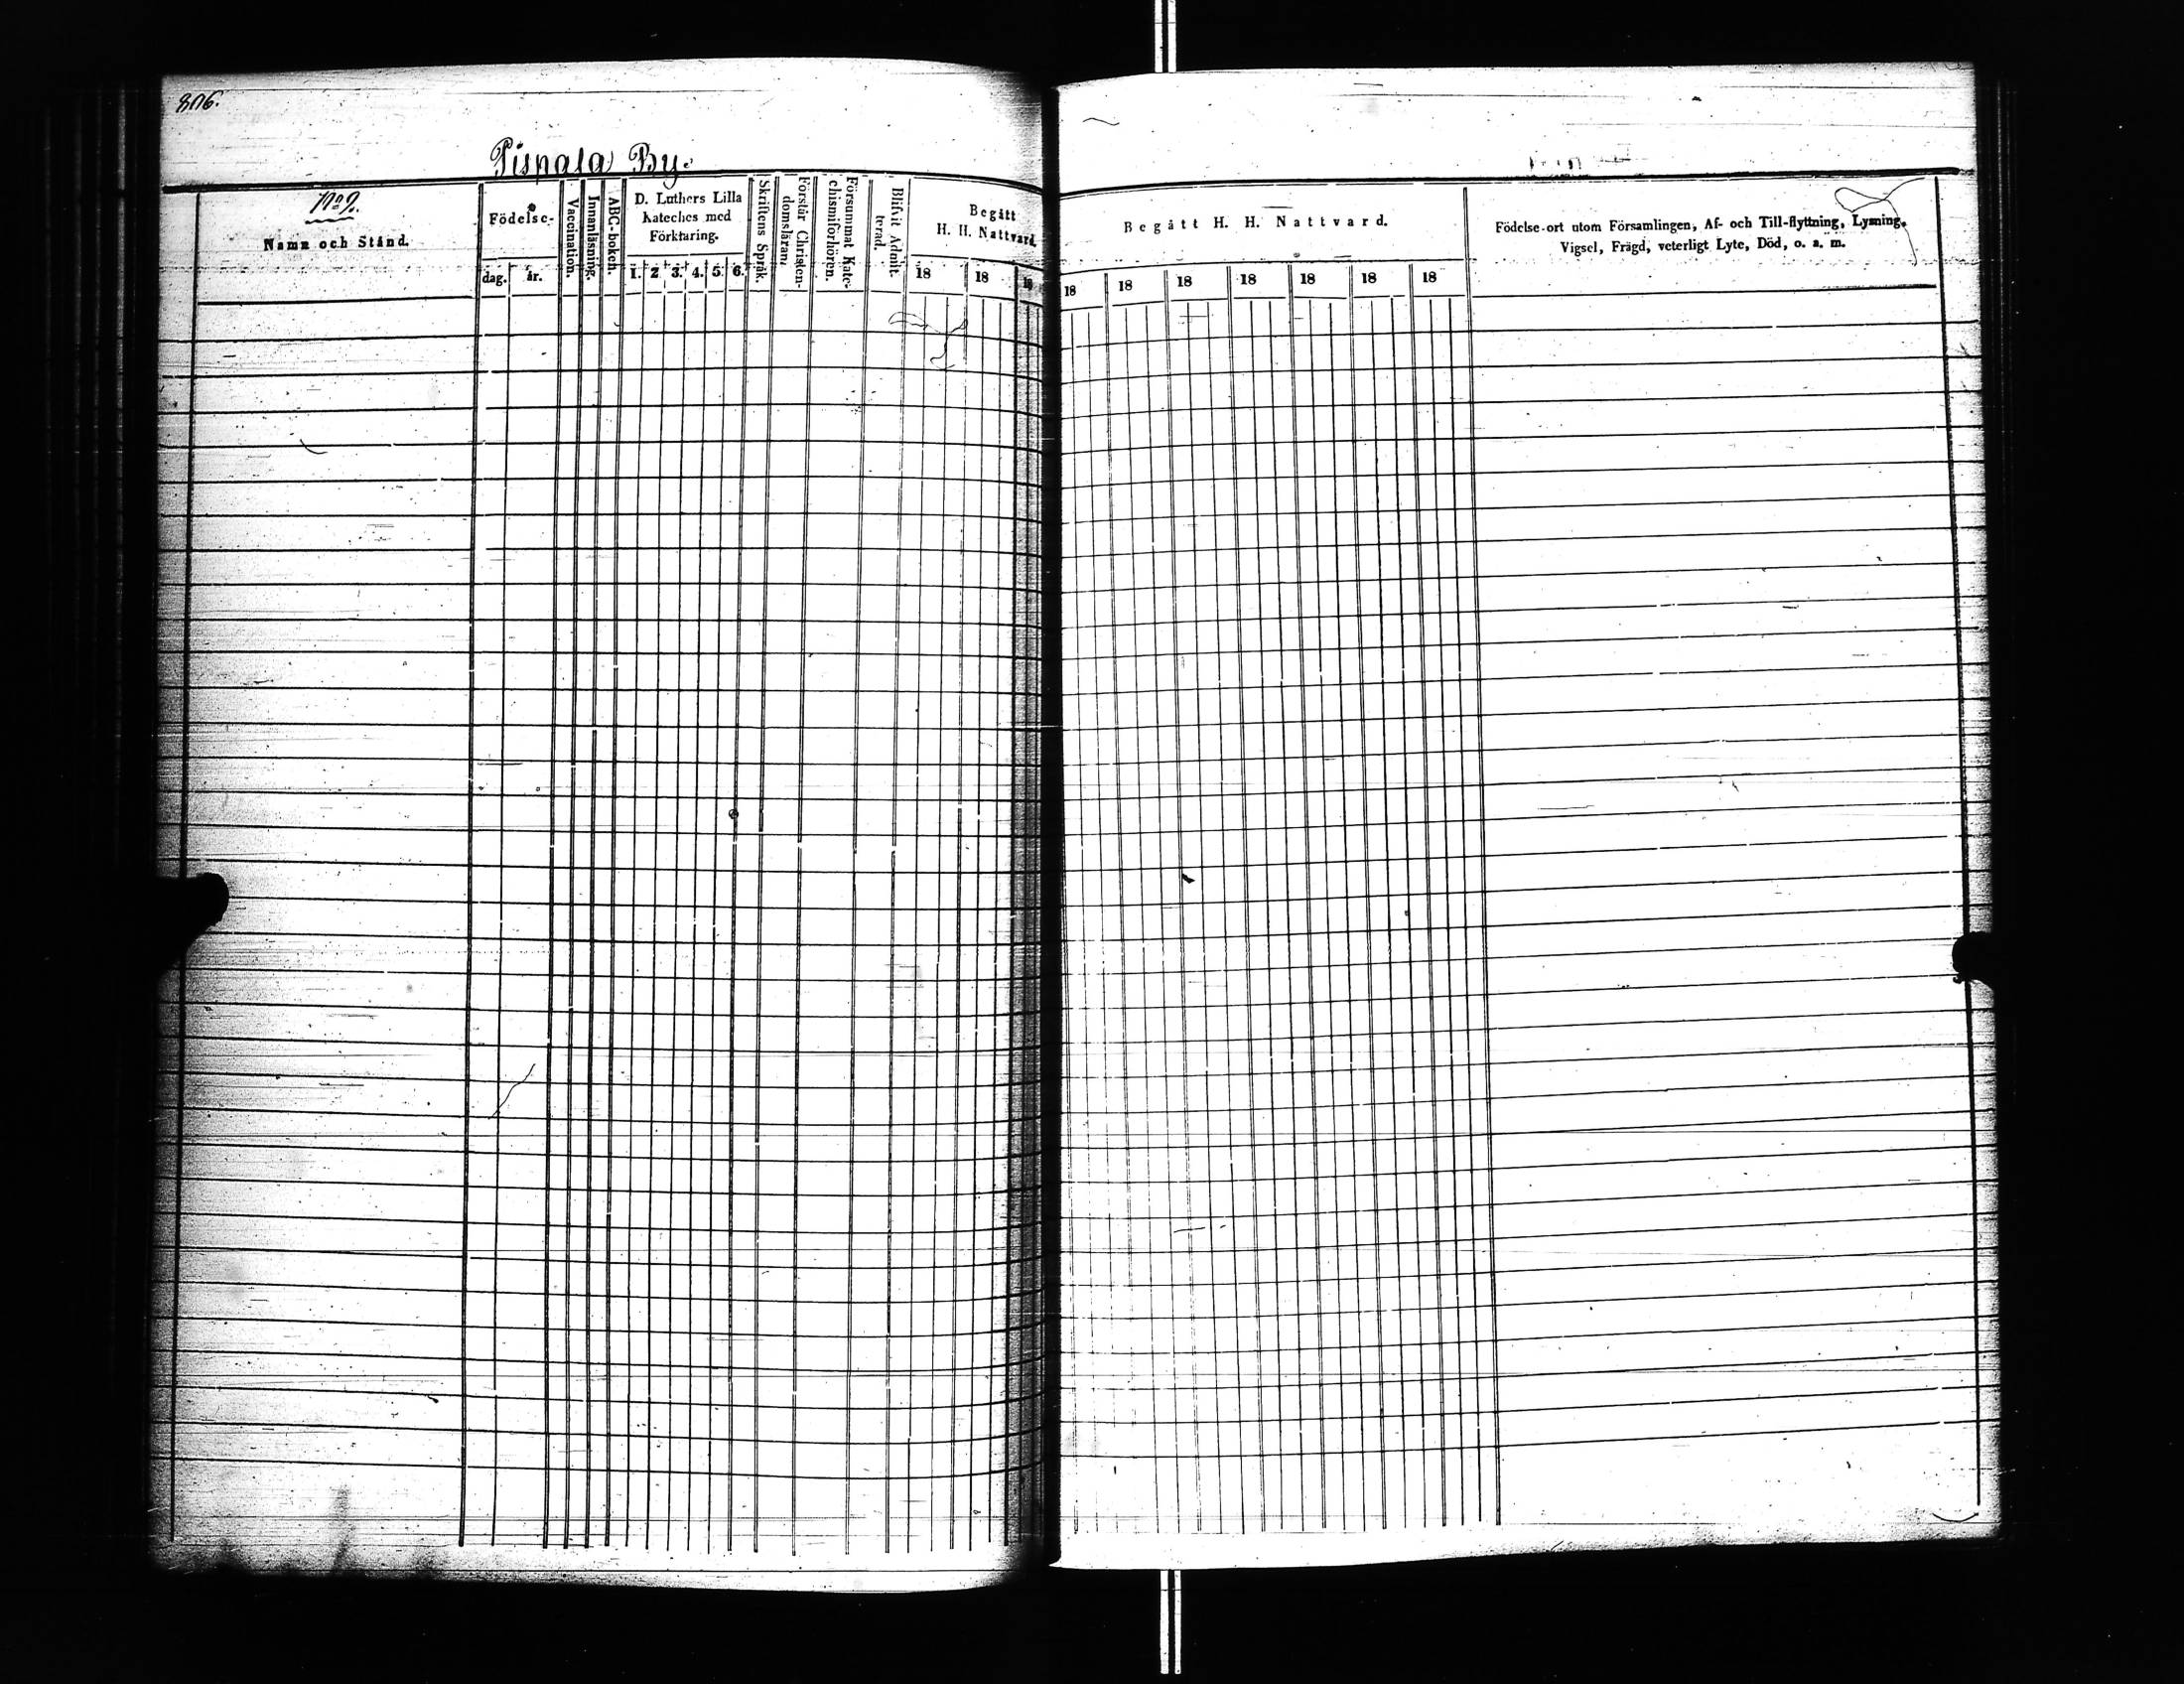 806.
Pispala By.
No 9.
Namn och Stånd.
Födelse-
dag. år.
Vaccination.
Innanläsning.
ABC-boken.
D. Luthers Lilla
Kateches med
Förklaring.
1. 2. 3. 4. 5. 6.
Skriftens Språk.
Förstår Christen-
domsläran.
Försummat Kate-
chismiförhören.
Blifvit Admit-
terad.
Begått
H. H. Nattvard.
18 18 18
Begått H. H. Nattvard.
18 18 18 18 18 18 18
Födelse-ort utom Församlingen, Af- och Till-flyttning, Lysning,
Vigsel, Frägd, veterligt Lyte, Död, o. a. m.